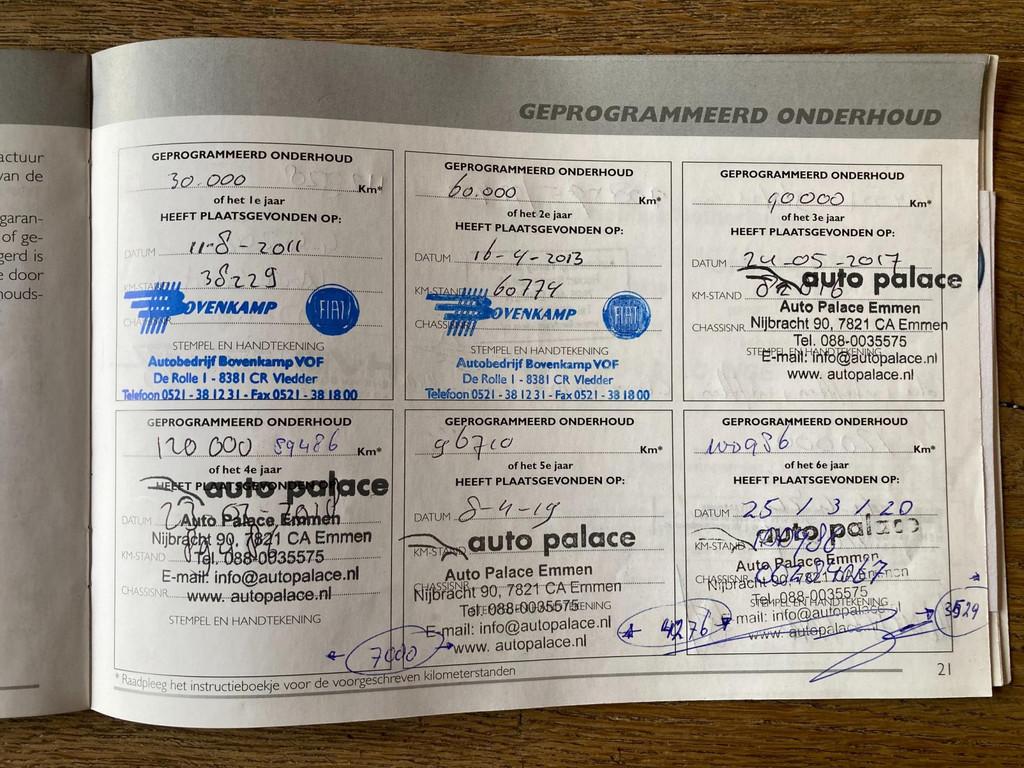 actuur
van de
garan-
of ge-
gerd is
e door
nouds-
GEPROGRAMMEERD ONDERHOUD
GEPROGRAMMEERD ONDERHOUD
30.000 Km*
of het 1e jaar
HEEFT PLAATSGEVONDEN OP:
DATUM 11-8-2011
KM-STAND 38229
BOVENKAMP FIAT
STEMPEL EN HANDTEKENING
Autobedrijf Bovenkamp VOF
De Rolle 1 - 8381 CR Vledder
Telefoon 0521 - 38 12 31 - Fax 0521 - 38 18 00
GEPROGRAMMEERD ONDERHOUD
60.000 Km*
of het 2e jaar
HEEFT PLAATSGEVONDEN OP:
DATUM 16-4-2013
KM-STAND 60774
BOVENKAMP FIAT
STEMPEL EN HANDTEKENING
Autobedrijf Bovenkamp VOF
De Rolle 1 - 8381 CR Vledder
Telefoon 0521 - 38 12 31 - Fax 0521 - 38 18 00
GEPROGRAMMEERD ONDERHOUD
90000 Km*
of het 3e jaar
HEEFT PLAATSGEVONDEN OP:
DATUM 24-05-2017
auto palace
KM-STAND
Auto Palace Emmen
CHASSISNR. Nijbracht 90, 7821 CA Emmen
Tel. 088-0035575
STEMPEL EN HANDTEKENING
E-mail: info@autopalace.nl
www. autopalace.nl
GEPROGRAMMEERD ONDERHOUD
120 000 89486 Km*
of het 4e jaar
HEEFT PLAATSGEVONDEN OP:
auto palace
DATUM
Auto Palace Emmen
Nijbracht 90, 7821 CA Emmen
KM-STAND
Tel. 088-0035575
E-mail: info@autopalace.nl
CHASSISNR.
www. autopalace.nl
STEMPEL EN HANDTEKENING
GEPROGRAMMEERD ONDERHOUD
96710 Km*
of het 5e jaar
HEEFT PLAATSGEVONDEN OP:
DATUM 8-4-19
KM-STAND
auto palace
Auto Palace Emmen
CHASSISNR.
Nijbracht 90, 7821 CA Emmen
Tel. 088-0035575
STEMPEL EN HANDTEKENING
E-mail: info@autopalace.nl
www. autopalace.nl
7000
GEPROGRAMMEERD ONDERHOUD
100986 Km*
of het 6e jaar
HEEFT PLAATSGEVONDEN OP:
DATUM 25/3/20
auto palace
KM-STAND 100986
Auto Palace Emmen
CHASSISNR.
Nijbracht 90, 7821 CA Emmen
Tel. 088-0035575
STEMPEL EN HANDTEKENING
E-mail: info@autopalace.nl
www. autopalace.nl
4276
3529
* Raadpleeg het instructieboekje voor de voorgeschreven kilometerstanden
21